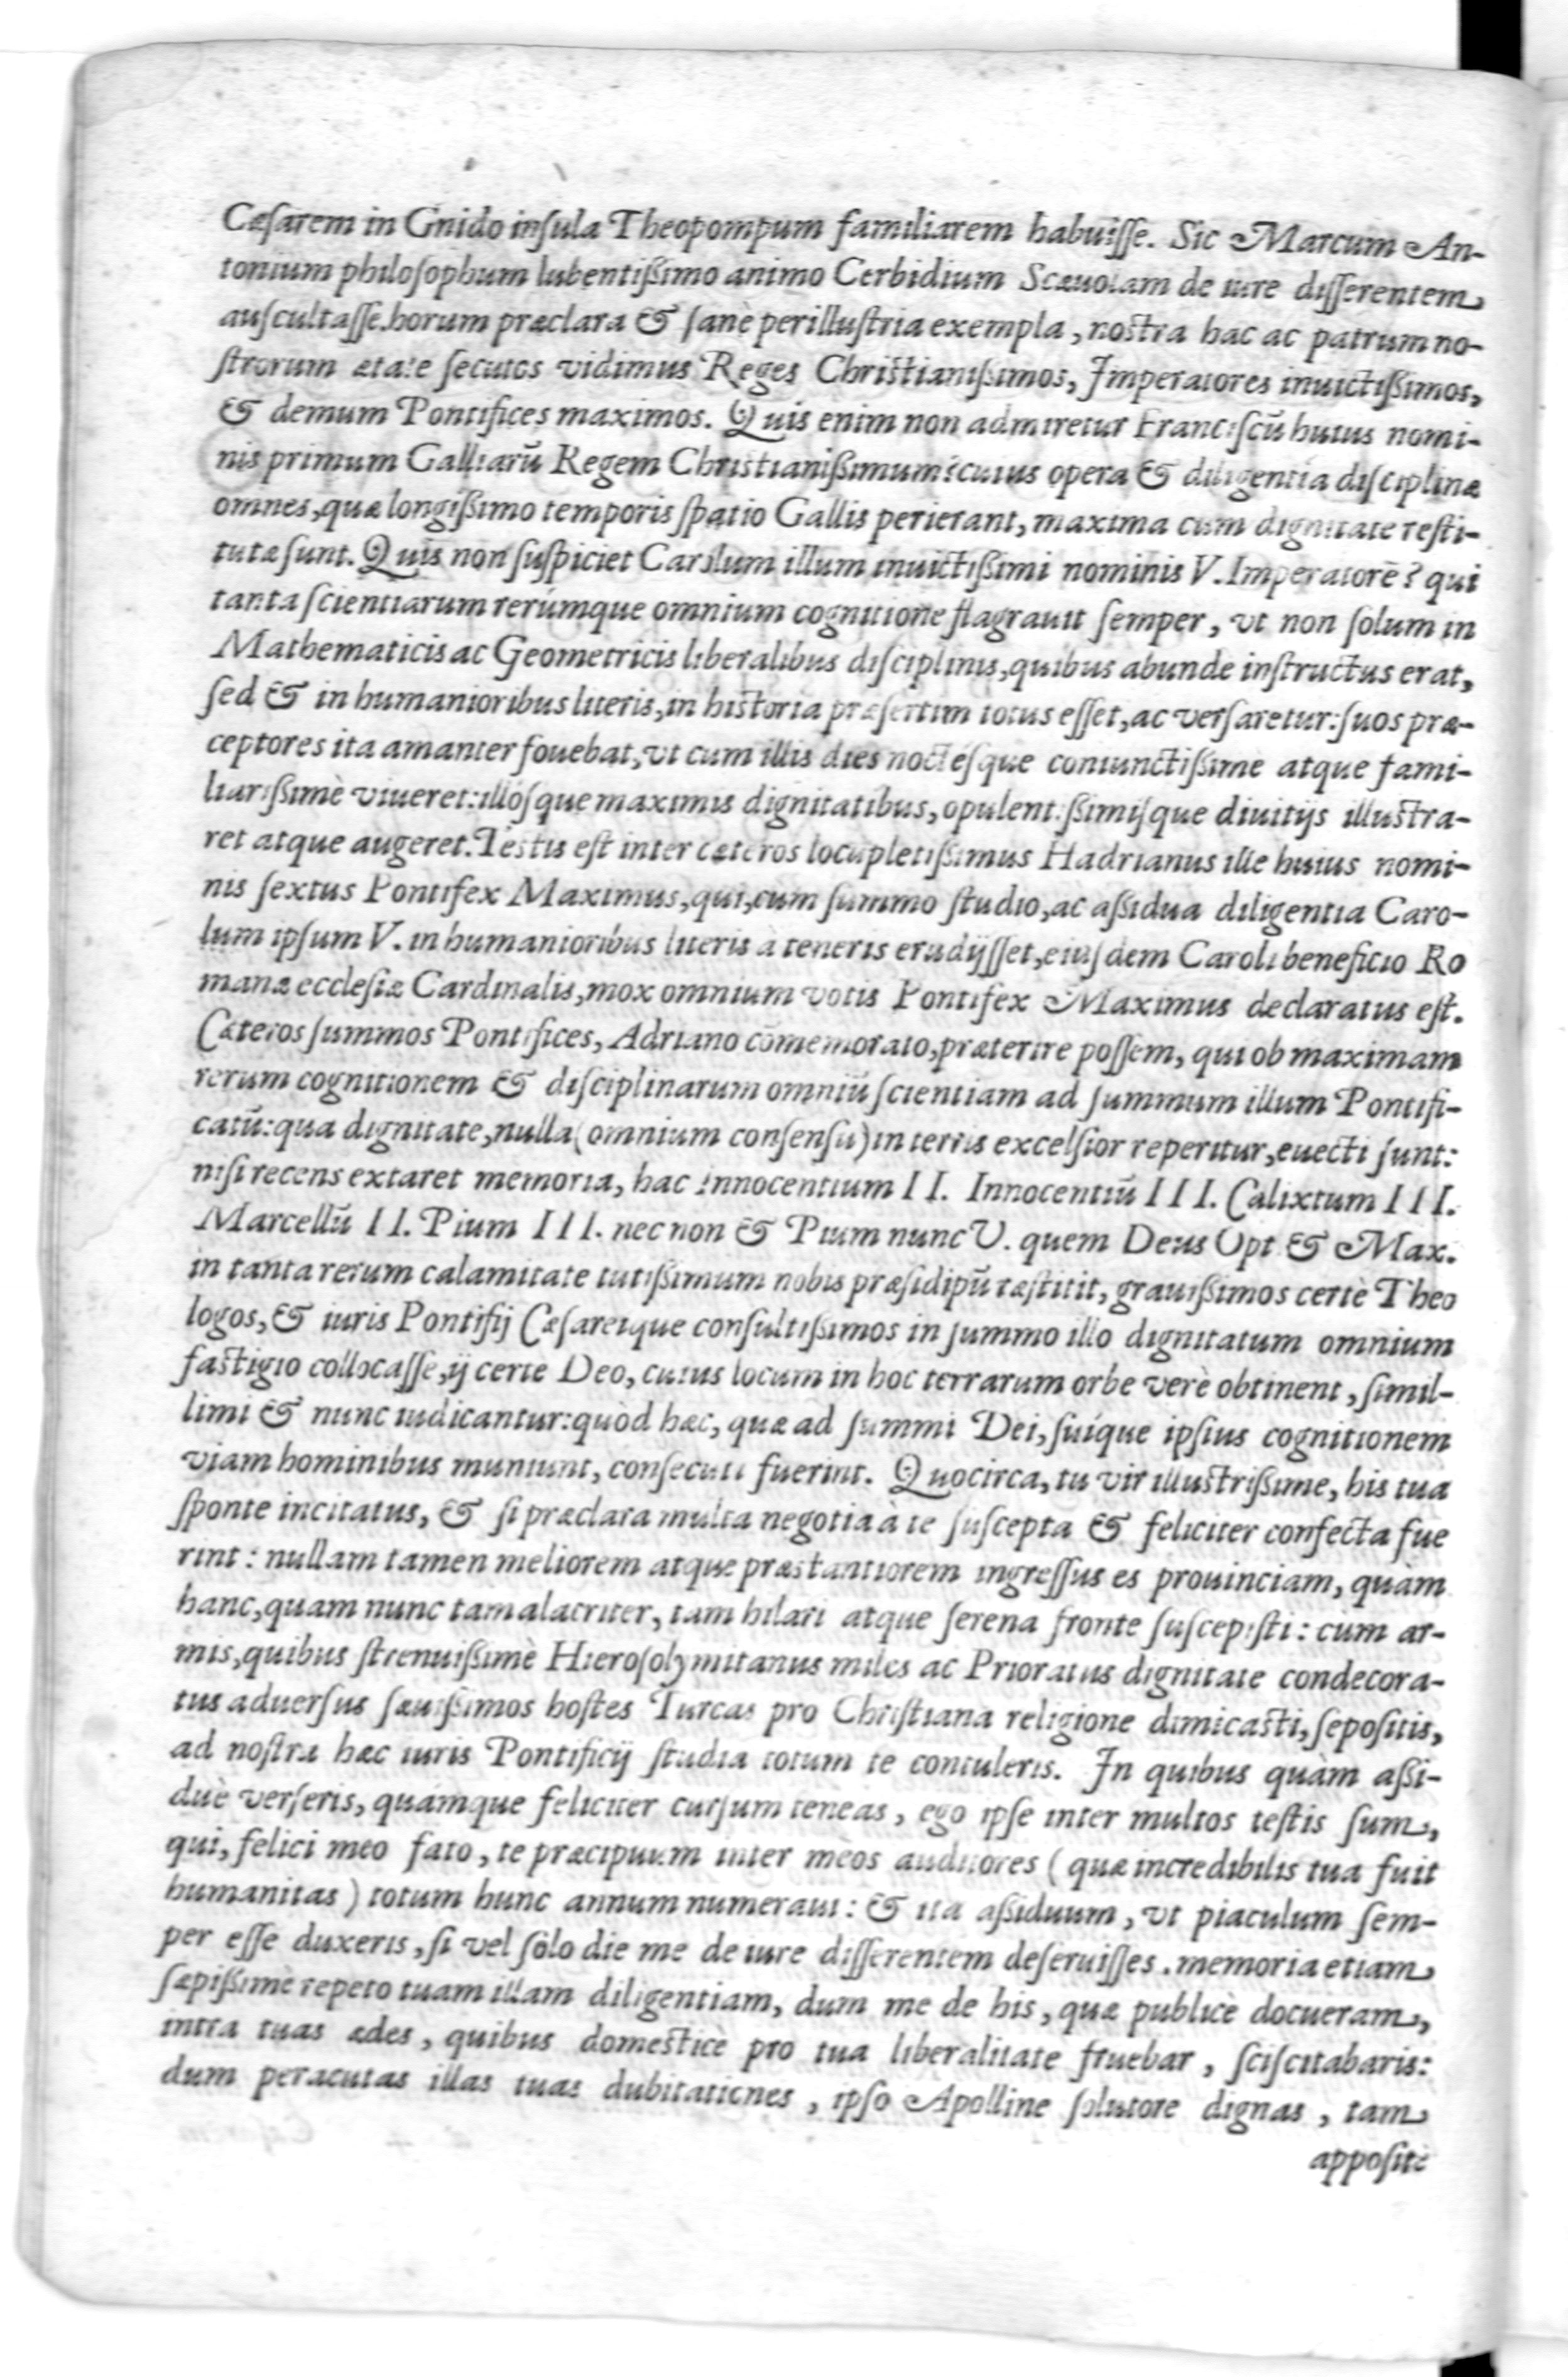 Cæſarem in Gnido inſula Theopompum familiarem habuiſſe. Sic Marcum An-
tonium philoſophum lubentißimo animo Cerbidium Scæuolam de iure diſſerentem
auſcultaſſe.horum præclara & ſanè perilluſtria exempla, noſtra hac ac patrum no-
ſtrorum ætate ſecutos vidimus Reges Chriſtianißimos, Imperatores inuictißimos,
& demum Pontifices maximos. Quis enim non admiretur Franciſcū huius nomi-
nis primum Galliarū Regem Chriſtianißimum? cuius opera & diligentia diſciplinæ
omnes, quæ longißimo temporis ſpatio Gallis perierant, maxima cum dignitate reſti-
tutæ ſunt. Quis non ſuſpiciet Carolum illum inuictißimi nominis V. Imperatorē? qui
tanta ſcientiarum rerúmque omnium cognitione flagrauit ſemper, vt non ſolum in
Mathematicis ac Geometricis liberalibus diſciplinis, quibus abunde inſtructus erat,
ſed & in humanioribus literis, in hiſtoria præſertim totus eſſet, ac verſaretur: ſuos præ-
ceptores ita amanter fouebat, vt cum illis dies noctéſque coniunctißime atque fami-
liarißimè viueret: illóſque maximis dignitatibus, opulentißimiſque diuitijs illuſtra-
ret atque augeret. Teſtis eſt inter cæteros locupletißimus Hadrianus ille huius nomi-
nis ſextus Pontifex Maximus, qui, cum ſummo ſtudio, ac aßidua diligentia Caro-
lum ipſum V. in humanioribus literis à teneris erudijſſet, eiuſdem Caroli beneficio Ro
manæ eccleſiæ Cardinalis, mox omnium votis Pontifex Maximus declaratus eſt.
Cæteros ſummos Pontifices, Adriano cōmemorato, præterire poſſem, qui ob maximam
rerum cognitionem & diſciplinarum omniū ſcientiam ad ſummum illum Pontifi-
catū: qua dignitate, nulla (omnium conſenſu) in terris excelſior reperitur, euecti ſunt:
niſi recens extaret memoria, hac Innocentium II. Innocentiū III. Calixtum III.
Marcellū II. Pium III. nec non & Pium nunc V. quem Deus Opt. & Max.
in tanta rerum calamitate tutißimum nobis præſidipū ræſtitit, grauißimos certè Theo
logos, & iuris Pontifij Cæſareique conſultißimos in ſummo illo dignitatum omnium
faſtigio collocaſſe, ij certe Deo, cuius locum in hoc terrarum orbe verè obtinent, ſimil-
limi & nunc iudicantur: quòd hæc, quæ ad ſummi Dei, ſuíque ipſius cognitionem
viam hominibus muniunt, conſecuti fuerint. Quocirca, tu vir illuſtrißime, his tua
ſponte incitatus, & ſi præclara multa negotia à te ſuſcepta & feliciter confecta fue
rint: nullam tamen meliorem atque præſtantiorem ingreſſus es prouinciam, quàm
hanc, quam nunc tam alacriter, tam hilari atque ſerena fronte ſuſcepiſti: cum ar-
mis, quibus ſtrenuißimè Hieroſolymitanus miles ac Prioratus dignitate condecora-
tus aduerſus ſæuißimos hoſtes Turcas pro Chriſtiana religione dimicaſti, ſepoſitis,
ad noſtra hæc iuris Pontificij ſtudia totum te contuleris. In quibus quàm aßi-
duè verſeris, quámque feliciter curſum teneas, ego ipſe inter multos teſtis ſum,
qui, felici meo fato, te præcipuum inter meos auditores (quæ incredibilis tua fuit
humanitas) totum hunc annum numeraui: & ita aßiduum, vt piaculum ſem-
per eſſe duxeris, ſi vel ſolo die me de iure diſſerentem deſeruiſſes. memoria etiam
ſæpißimè repeto tuam illam diligentiam, dum me de his, quæ publicè docueram,
intra tuas ædes, quibus domeſticè pro tua liberalitate fruebar, ſciſcitabaris:
dum peracutas illas tuas dubitationes, ipſo Apolline ſolutore dignas, tam
appoſitè